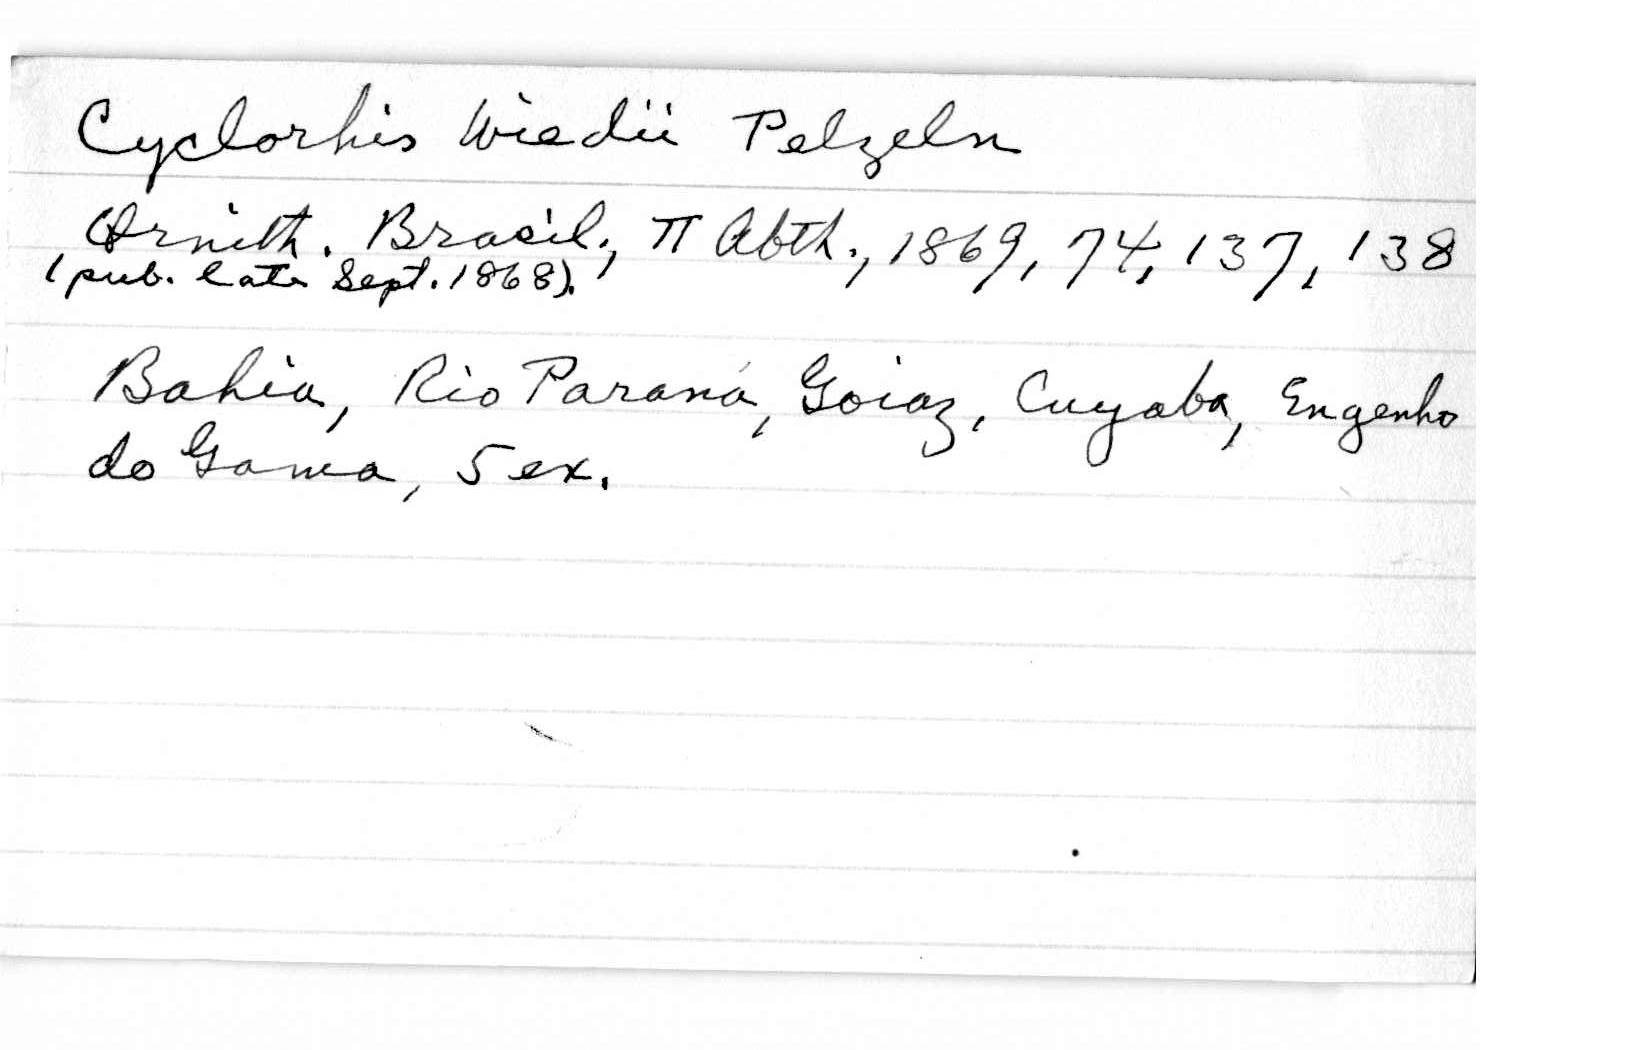 Cyclorhis Wiedii Pelzeln
Ornith. Brasil., II Abth., 1869, 74, 137, 138
(pub. late Sept. 1868).
Bahia, Rio Paraná, Goiaz, Cuyaba, Engenho
do Gama, 5 ex.